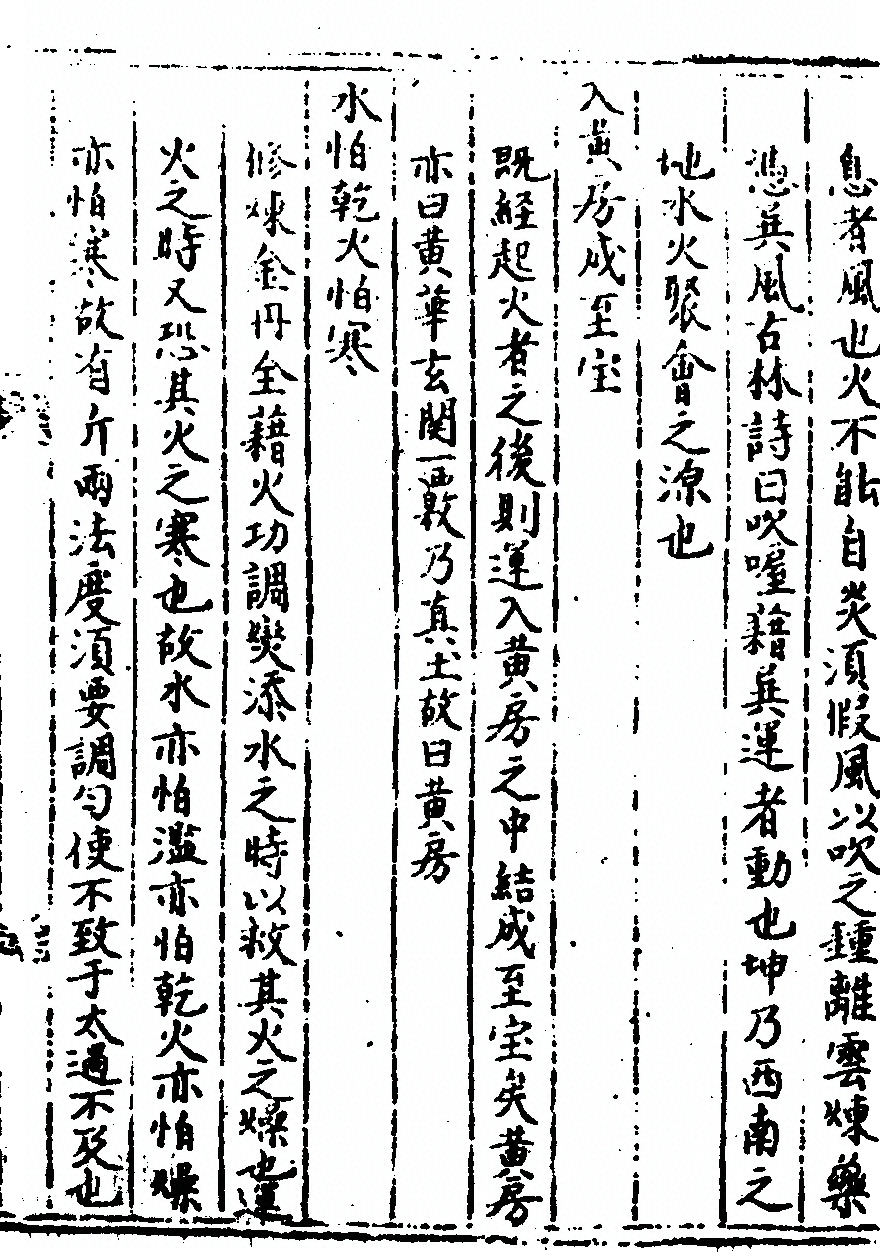 息者風也火不能自炎須假風以吹之鍾離雲煉藥
憑巽風古林詩曰吹噓藉巽運者動也坤乃西南之
地水火聚會之源也
入黄房成至宝
既経起火者之後則運入黄房之中結成至宝矣黄房
亦曰黄華玄関一竅乃真土故曰黄房
水怕乾火怕寒
修煉金丹全藉火功調燮添水之時以救其火之燥也運
火之時又恐其火之寒也故水亦怕濫亦怕乾火亦怕燥
亦怕寒故有斤兩法度須要調勻使不致于太過不及也